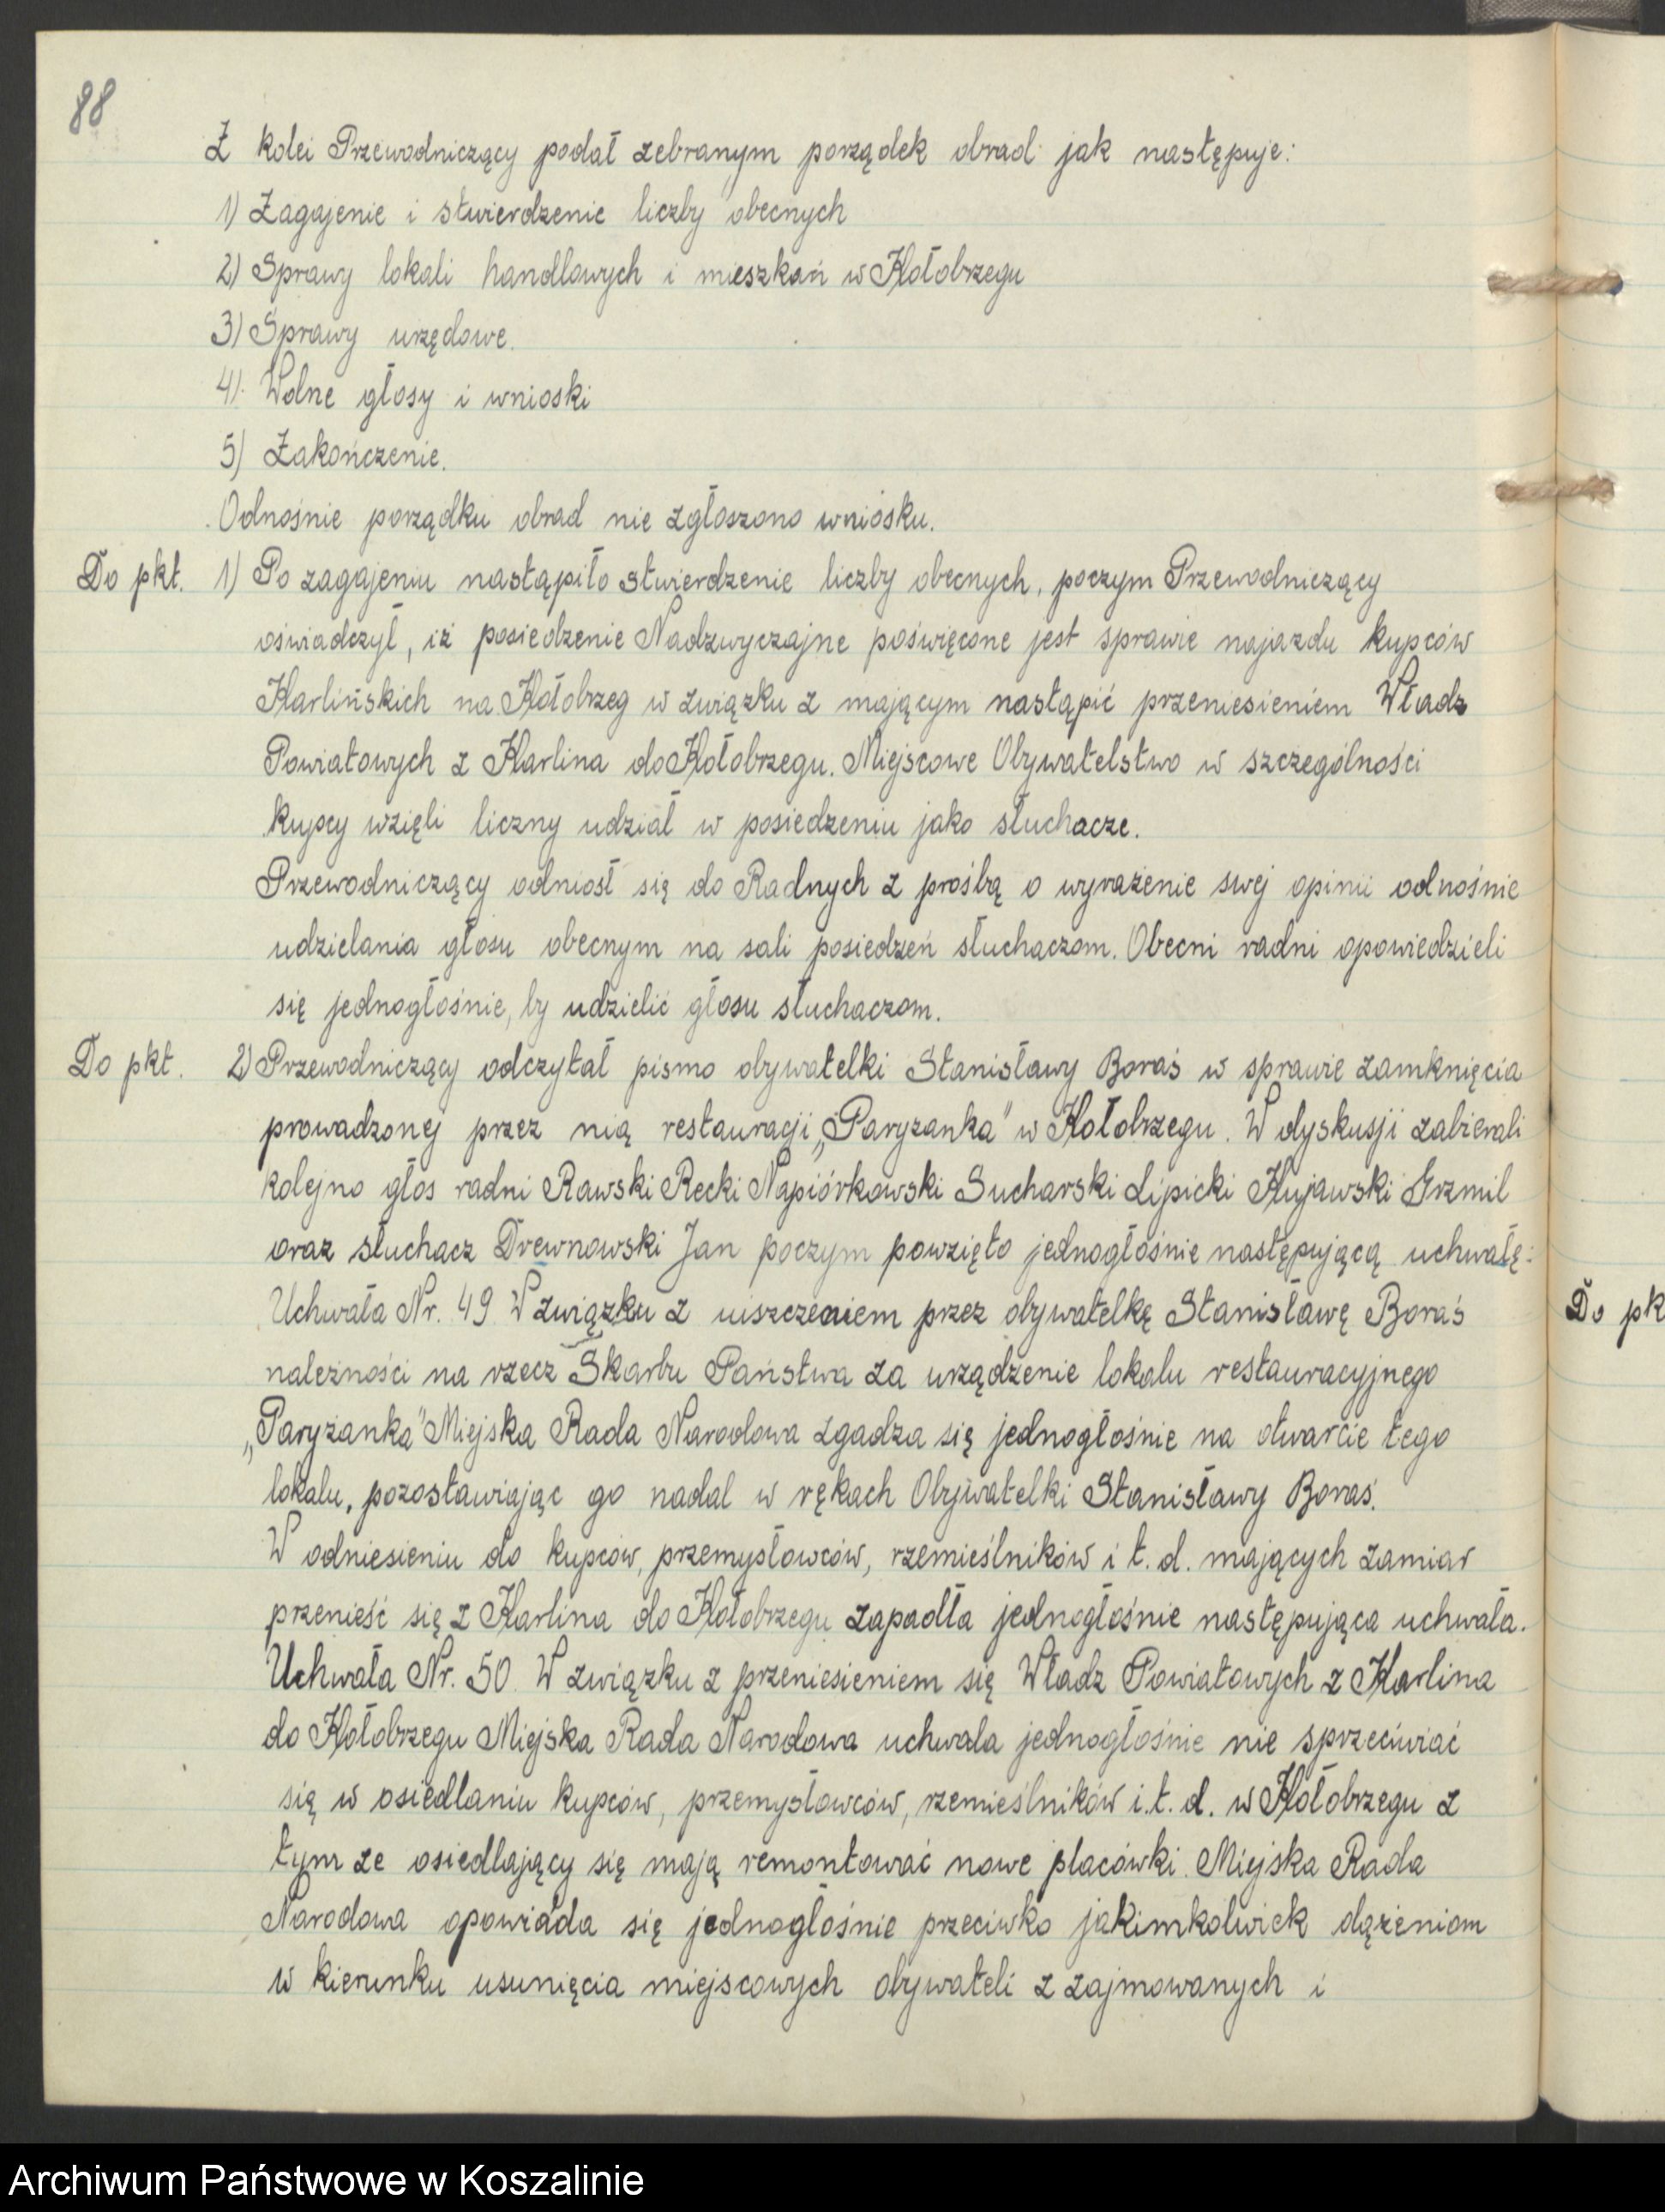 88
Z kolei Przewodniczący podał zebranym porządek obrad jak następuje:
1) Zagajenie i stwierdzenie liczby obecnych
2) Sprawy lokali handlowych i mieszkań w Kołobrzegu
3) Sprawy urzędowe.
4) Wolne głosy i wnioski
5) Zakończenie.
Odnośnie porządku obrad nie zgłoszono wniosku.
Do pkt. 1) Po zagajeniu nastąpiło stwierdzenie liczby obecnych, poczym Przewodniczący
oświadczył, iż posiedzenie Nadzwyczajne poświęcone jest sprawie najazdu kupców
Karlińskich na Kołobrzeg w związku z mającym nastąpić przeniesieniem Władz
Powiatowych z Karlina do Kołobrzegu. Miejscowe Obywatelstwo w szczególności
kupcy wzięli liczny udział w posiedzeniu jako słuchacze.
Przewodniczący odniosł się do Radnych z prośbą o wyrażenie swej opinii odnośnie
udzielania głosu obecnym na sali posiedzeń słuchaczom. Obecni radni opowiedzieli
się jednogłośnie, by udzielić głosu słuchaczom.
Do pkt. 2) Przewodniczący odczytał pismo obywatelki Stanisławy Boraś w sprawie zamknięcia
prowadzonej przez nią restauracji „Paryżanka" w Kołobrzegu. W dyskusji zabierali
kolejno głos radni Rawski Recki Napiórkowski Sucharski Lipicki Kujawski Grzmil
oraz słuchacz Drewnowski Jan poczym powzięto jednogłośnie następującą uchwałę:
Uchwała Nr. 49 W związku z uiszczeniem przez obywatelkę Stanisławę Boraś
należności na rzecz Skarbu Państwa za urządzenie lokalu restauracyjnego
„Paryżanka" Miejska Rada Narodowa zgadza się jednogłośnie na otwarcie tego
lokalu, pozostawiając go nadal w rękach Obywatelki Stanisławy Boraś.
W odniesieniu do kupców, przemysłowców, rzemieślników i t. d. mających zamiar
przenieść się z Karlina do Kołobrzegu zapadła jednogłośnie następująca uchwała.
Uchwała Nr. 50. W związku z przeniesieniem się Władz Powiatowych z Karlina
do Kołobrzegu Miejska Rada Narodowa uchwala jednogłośnie nie sprzeciwiać
się w osiedlaniu kupców, przemysłowców, rzemieślników i. t. d. w Kołobrzegu z
tym ze osiedlający się mają remontować nowe placówki. Miejska Rada
Narodowa opowiada się jednogłośnie przeciwko jakimkolwiek dążeniom
w kierunku usunięcia miejscowych obywateli z zajmowanych i
Do pk
Archiwum Państwowe w Koszalinie